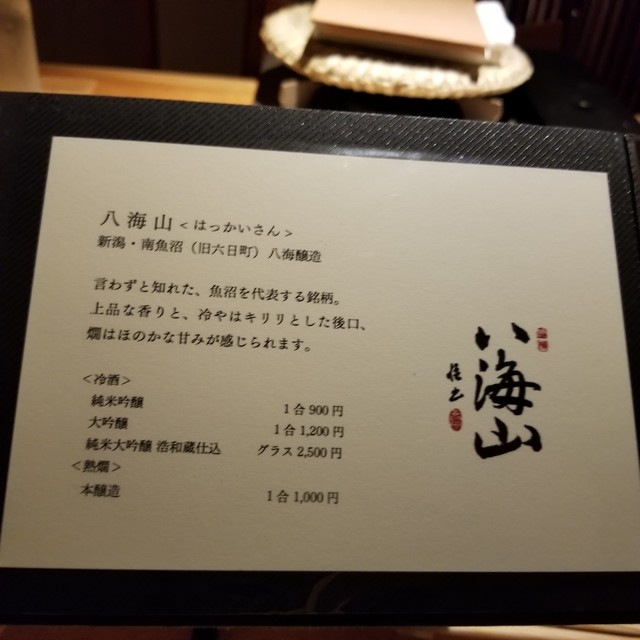 八海山<はっかいさん>
新潟・南魚沼（旧六日町）八海醸造
言わずと知れた、魚沼を代表する銘柄。
上品な香りと、冷やはキリリとした後口、
燗はほのかな甘みが感じられます。
<冷酒>
純米吟醸 1合900円
大吟醸 1合1,200円
純米大吟醸 浩和蔵仕込 グラス2,500円
<熱燗>
本醸造 1合1,000円
八海山